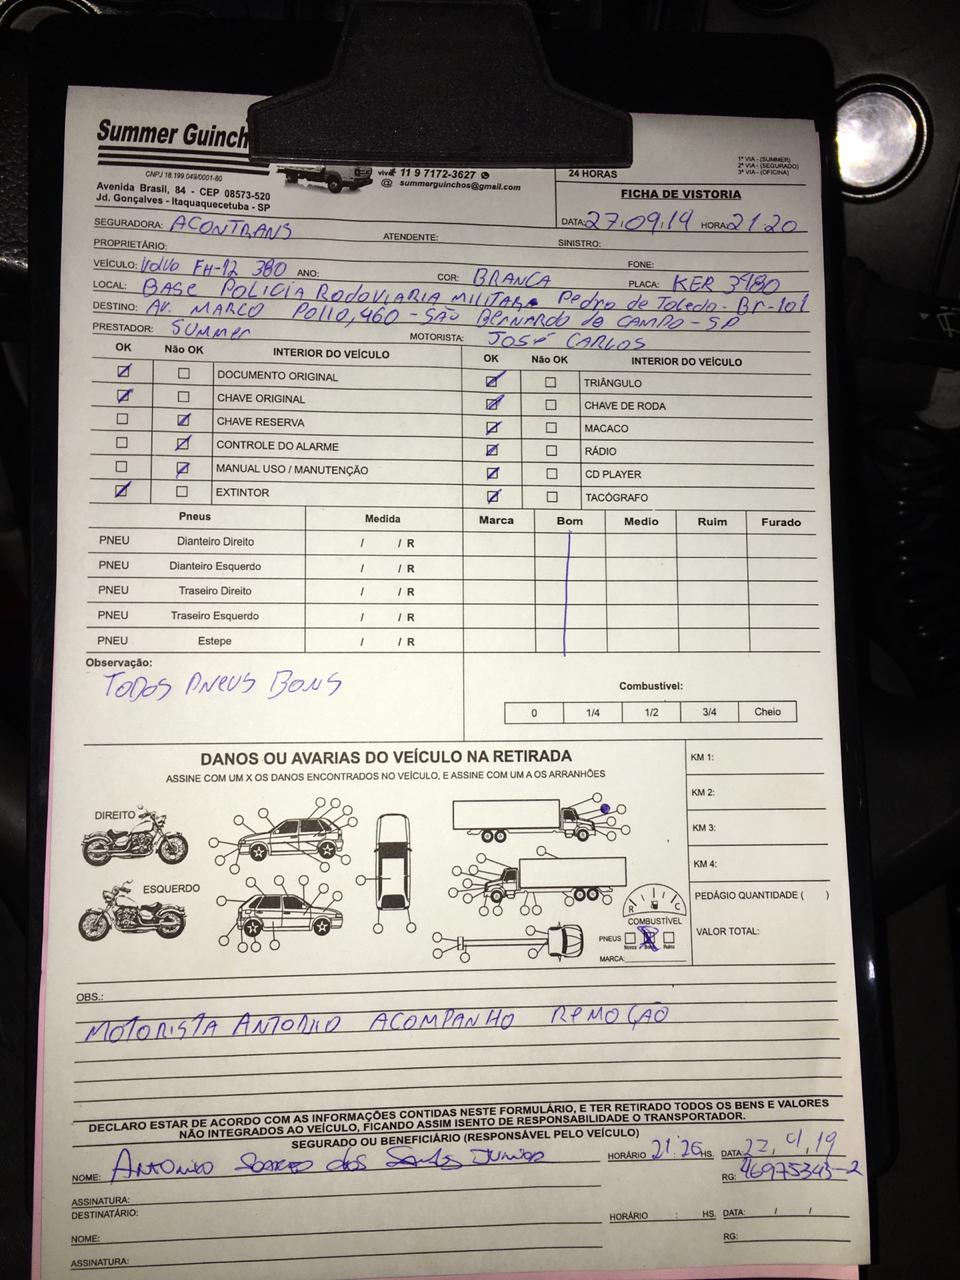 Summer Guinch
CNPJ 18.199.049/0001-60
Avenida Brasil, 84 - CEP 08573-520
Jd. Gonçalves - Itaquaquecetuba - SP
vivo 11 9 7172-3627
@ summerguinchos@gmail.com
24 HORAS
1ª VIA - (SUMMER)
2ª VIA - (SEGURADO)
3ª VIA - (OFICINA)
FICHA DE VISTORIA
DATA: 27.09.19 HORA: 21:20
SEGURADORA: ACONTRANS ATENDENTE: SINISTRO:
PROPRIETÁRIO: FONE:
VEÍCULO: Volvo FH-12 380 ANO: COR: BRANCA PLACA: KER 3480
LOCAL: BASE POLICIA RODOVIARIA MILITAR Pedro de Toledo - Br-101
DESTINO: AV. MARCO Pollo, 460 - SÃO BERNARDO do CAMPO - SP
PRESTADOR: SUMMER MOTORISTA: JOSÉ CARLOS
OK Não OK INTERIOR DO VEÍCULO OK Não OK INTERIOR DO VEÍCULO
DOCUMENTO ORIGINAL TRIÂNGULO
CHAVE ORIGINAL CHAVE DE RODA
CHAVE RESERVA MACACO
CONTROLE DO ALARME RÁDIO
MANUAL USO / MANUTENÇÃO CD PLAYER
EXTINTOR TACÓGRAFO
Pneus Medida Marca Bom Medio Ruim Furado
PNEU Dianteiro Direito / / R
PNEU Dianteiro Esquerdo / / R
PNEU Traseiro Direito / / R
PNEU Traseiro Esquerdo / / R
PNEU Estepe / / R
Observação:
TODOS PNEUS BONS
Combustível:
0 1/4 1/2 3/4 Cheio
DANOS OU AVARIAS DO VEÍCULO NA RETIRADA
ASSINE COM UM X OS DANOS ENCONTRADOS NO VEÍCULO, E ASSINE COM UM A OS ARRANHÕES
DIREITO
ESQUERDO
R C
COMBUSTÍVEL
PNEUS
MARCA:
KM 1:
KM 2:
KM 3:
KM 4:
PEDÁGIO QUANTIDADE ( )
VALOR TOTAL:
OBS.:
MOTORISTA ANTONIO ACOMPANHO REMOÇÃO
DECLARO ESTAR DE ACORDO COM AS INFORMAÇÕES CONTIDAS NESTE FORMULÁRIO, E TER RETIRADO TODOS OS BENS E VALORES
NÃO INTEGRADOS AO VEÍCULO, FICANDO ASSIM ISENTO DE RESPONSABILIDADE O TRANSPORTADOR.
SEGURADO OU BENEFICIÁRIO (RESPONSÁVEL PELO VEÍCULO)
HORÁRIO 21:26 HS. DATA:
NOME: ANTONIO Soares dos Santos Junior RG: 46975343-2
ASSINATURA:
DESTINATÁRIO: HORÁRIO : HS. DATA: / /
NOME: RG:
ASSINATURA: